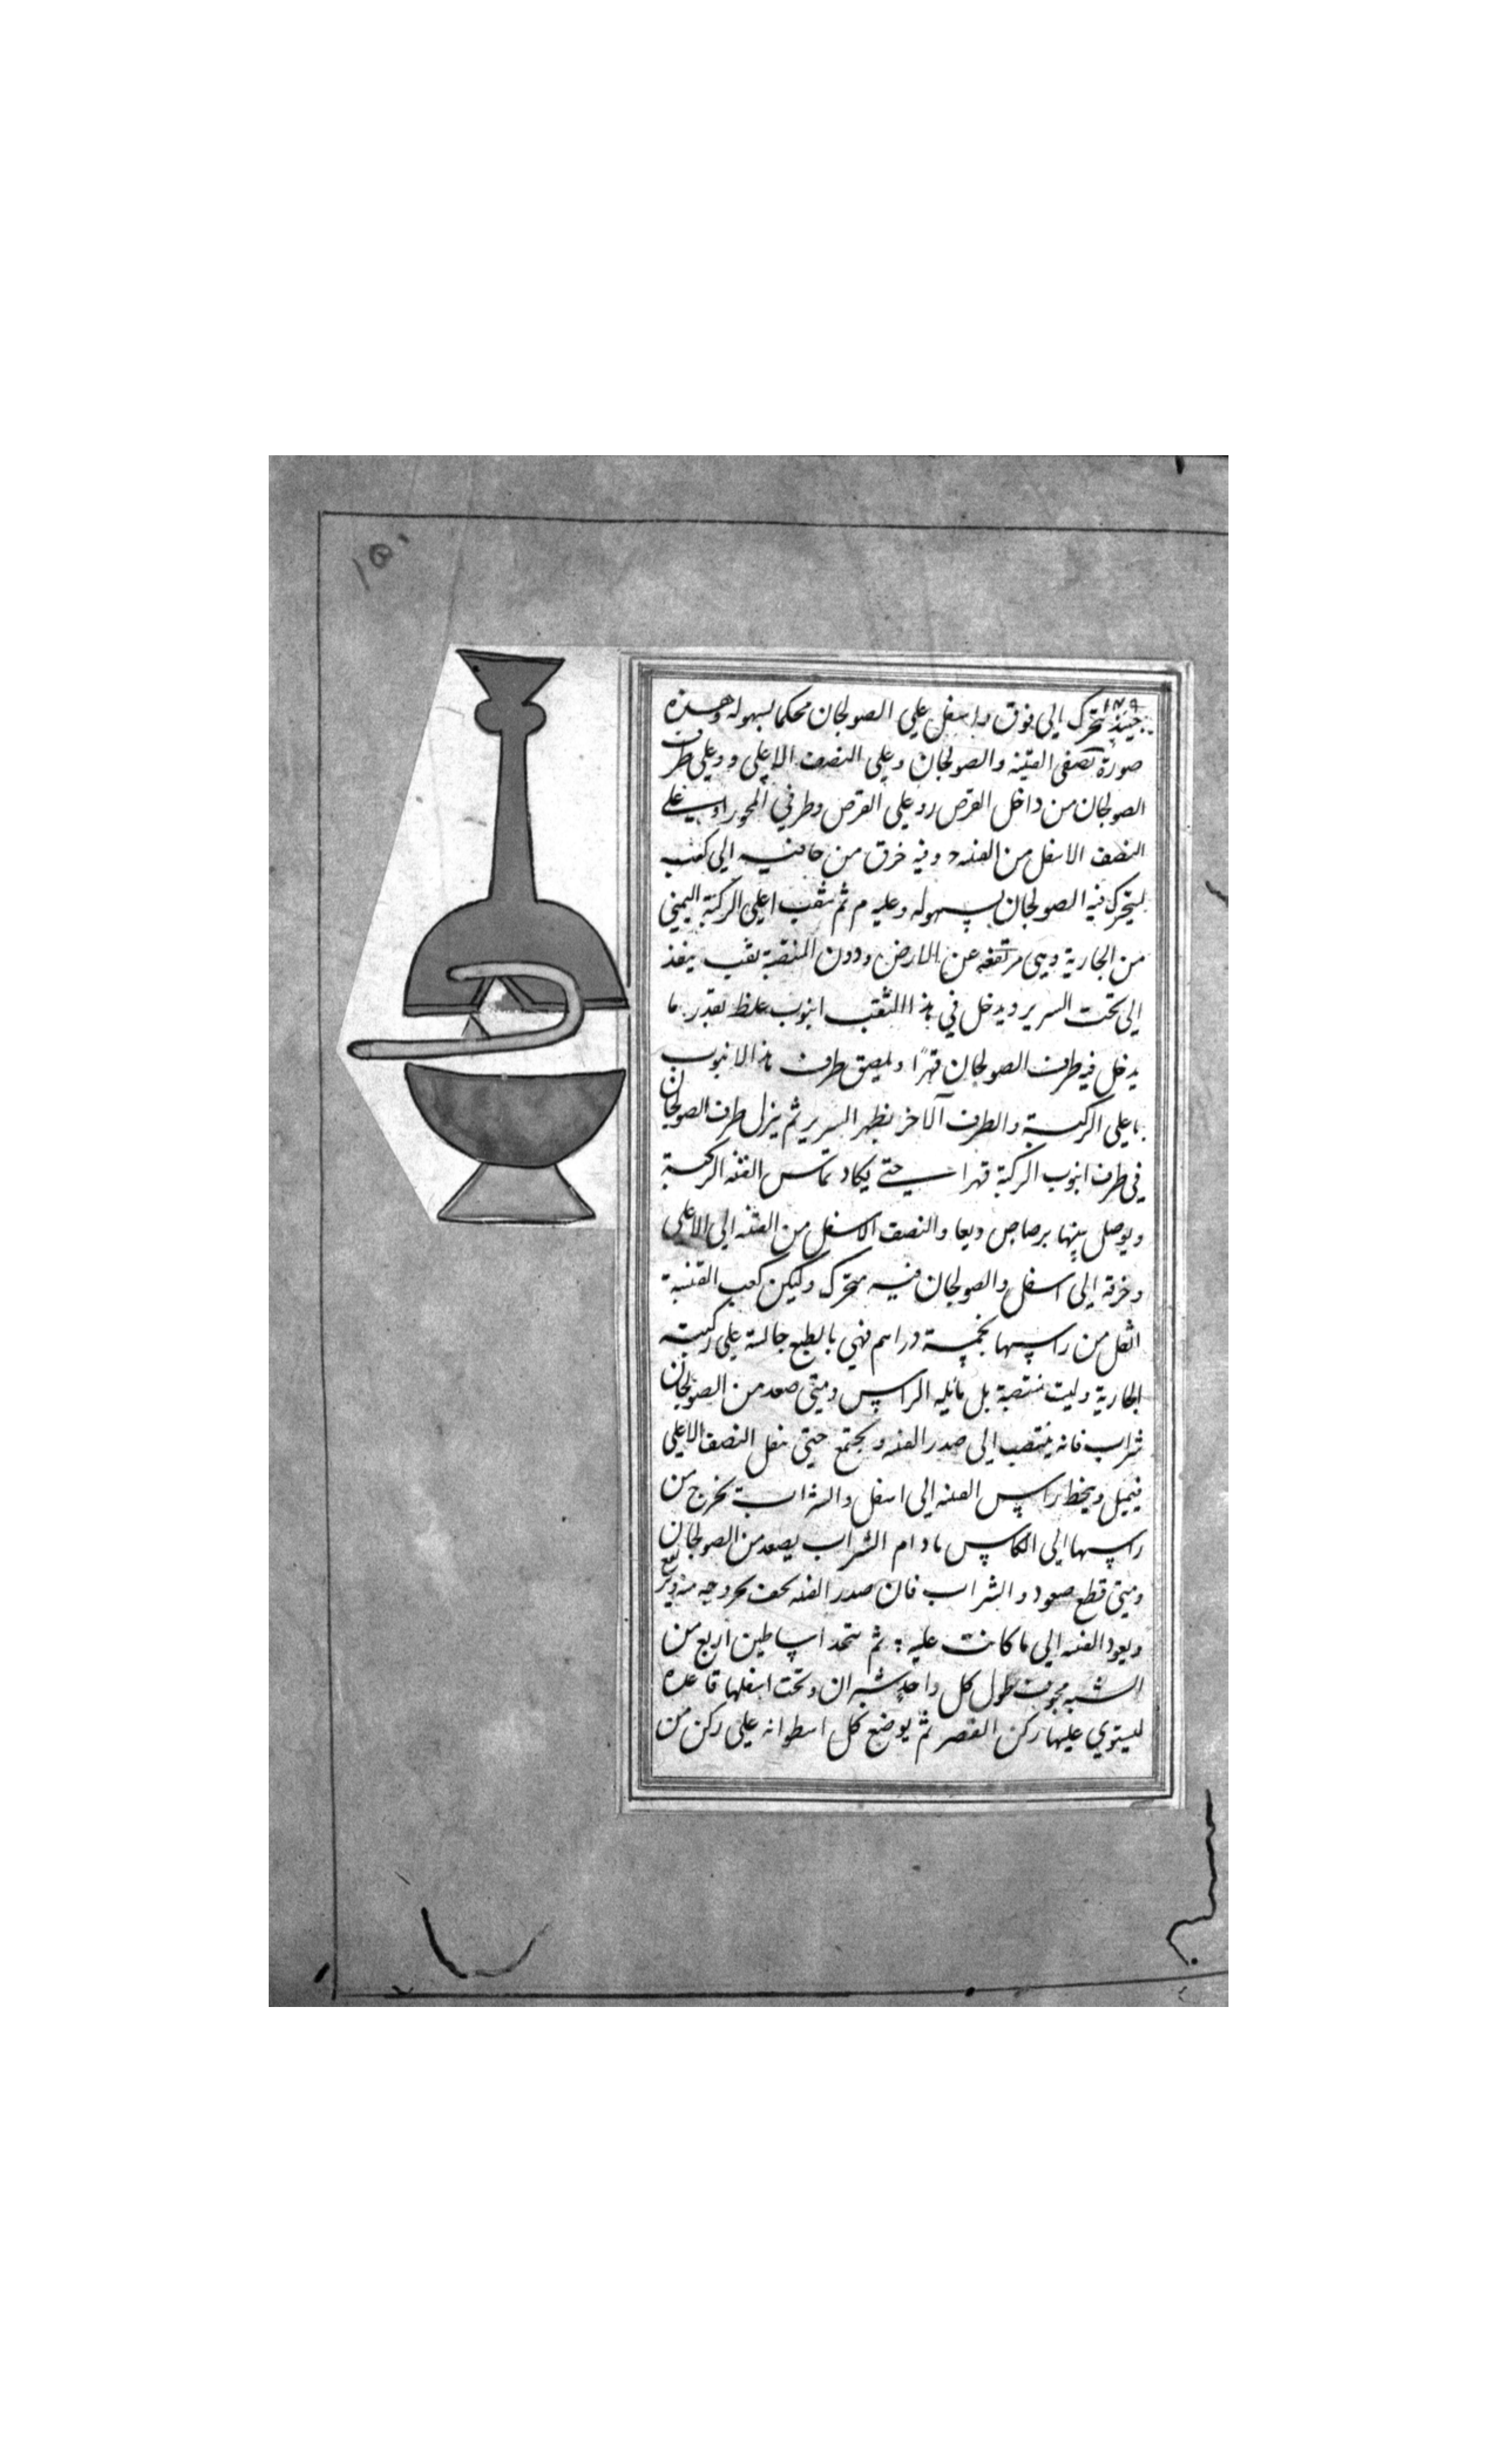 ١٥٠
١٧٩
حينئذ يتحرك الي فوق واسفل علي الصولجان محكما بسهوله وهذه
صورة نصفي القنينه والصولجان وعلي النصف الاعلي و وعلي طرف
الصولجان من داخل القرص ر وعلي القرص وطرفي المحور علي
النصف الاسفل من القنينه وفيه خرق من حافته الي كعبه
ليتحرك فيه الصولجان بسهوله وعليه م ثم يثقب اعلي الركبة اليمني
من الجارية وهي مرتفعه عن الارض ودون المنتصبة ثقب ينفذ
الي تحت السرير ويدخل في هذا الثقب انبوب غلظ بقدر ما
يدخل فيه طرف الصولجان قهرًا ويلصق طرف هذا الانبوب
باعلي الركبة والطرف آلاخر بظهر السرير ثم ينزل طرف الصولجان
في طرف انبوب الركبة قهرا حتي يكاد تماس القنينه الركبة
ويوصل بينها برصاص ويعا والنصف الاسفل من القنينه الي الاعلي
وخرقه الي اسفل والصولجان فيه متحرك وليكن كعب القنينة
اثقل من راسها بخمسة دراهم فهي بالطبع جالسة علي ركبته
الجارية وليت منتصبة بل مائله الراس ومتي صعد من الصولجان
شراب فانه ينتصب الي صدر القنينه ويجتمع حتي يثقل النصف الاعلي
فيميل وينحط راس القنينه الي اسفل والشراب يخرج من
راسها الي الكاس مادام الشراب يصعد من الصولجان
ومتي قطع صعود والشراب فان صدر القنينه يخف بخروجه منه
ويعود القنينه الي ما كانت عليه : ثم يتخذ اساطين اربع من
الشبه مجوف طول كل واحد شبران وتحت اسفلها قاعدة
ليستوي عليها ركن القصر ثم يوضع كل اسطوانه علي ركن من